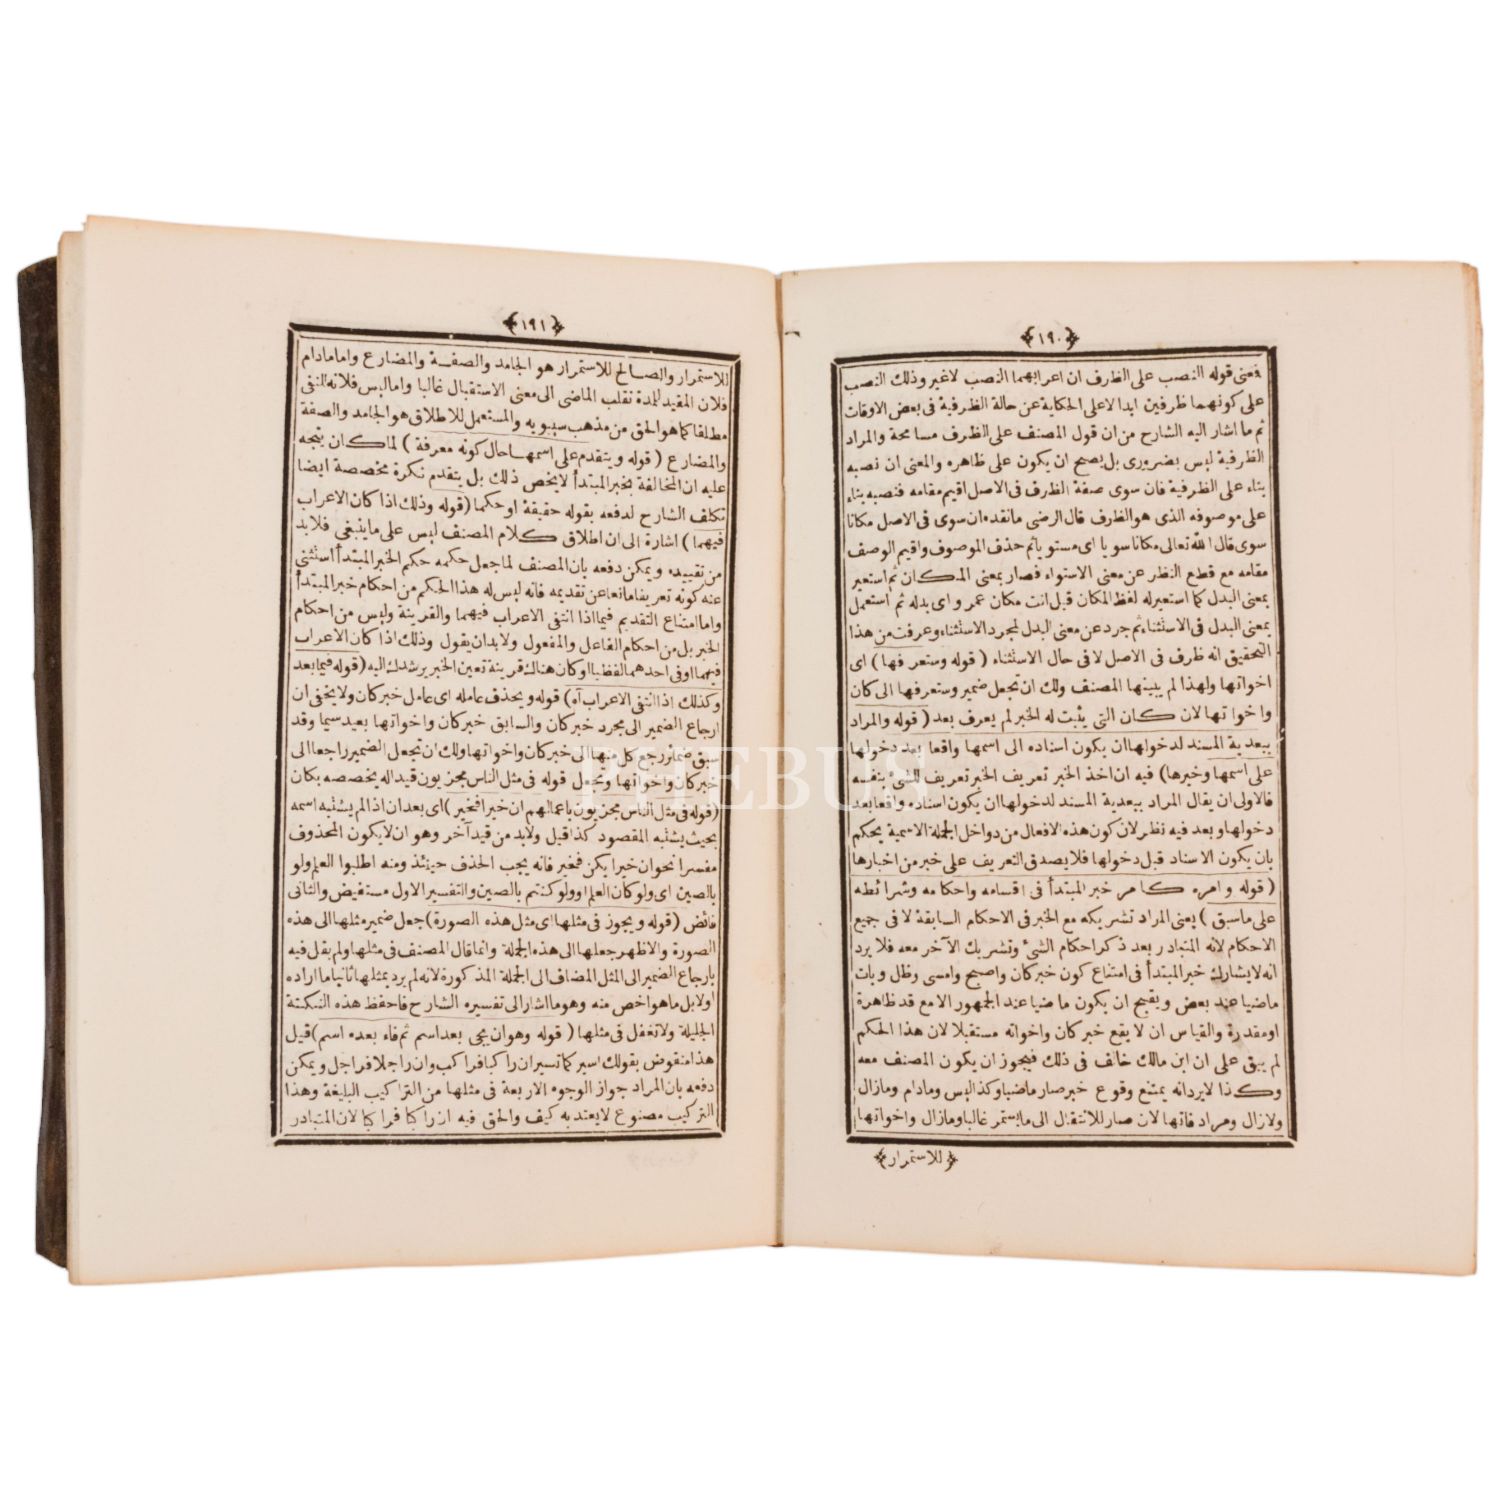 ﴿١٩٠﴾
فمعنى قوله النصب على الظرف ان اعرابهما النصب لاغير وذلك النصب
على كونهما ظرفين ابدا لاعلى الحكاية عن حالة الظرفية فى بعض الاوقات
ثم ما اشار اليه الشارح من ان قول المصنف على الظرف مسامحة والمراد
الظرفية ليس بضرورى بل يصح ان يكون على ظاهره والمعنى ان نصبه
بناء على الظرفية فان سوى صفة الظرف فى الاصل اقيم مقامه فنصبه بناء
على موصوفه الذى هو الظرف قال الرضى مانقده ان سوى فى الاصل مكانا
سوى قال الله تعالى مكانا سويا اى مستويا ثم حذف الموصوف واقيم الوصف
مقامه مع قطع النظر عن معنى الاستواء فصار بمعنى المكان ثم استعير
بمعنى البدل كما استعير له لفظ المكان قبل انت مكان عمرو اى بدله ثم استعمل
بمعنى البدل فى الاستثناء ثم جرد عن معنى البدل لمجرد الاستثناء وعرفت من هذا
التحقيق انه ظرف فى الاصل لا فى حال الاستثناء ( قوله وستعرفها ) اى
اخواتها ولهذا لم يبينها المصنف ولك ان تجعل ضمير وستعرفها الى كان
واخواتها لان كان التى يثبت له الخبر لم يعرف بعد ( قوله والمراد
ببعدية المسند لدخولها ان يكون اسناده الى اسمها واقعا بعد دخولها
على اسمها وخبرها) فيه ان اخذ الخبر تعريف الخبر تعريف للشئ بنفسه
فالاولى ان يقال المراد ببعدية المسند لدخولها ان يكون اسناده واقعا بعد
دخولها وبعد فيه نظر لان كون هذه الافعال من دواخل الجملة الاسمية يحكم
بان يكون الاسناد قبل دخولها فلا يصدق التعريف على خبر من اخبارها
( قوله وامره كامر خبر المبتدأ فى اقسامه واحكامه وشرائطه
على ماسبق ) يعنى المراد تشريكه مع الخبر فى الاحكام السابقة لا فى جميع
الاحكام لانه المتبادر بعد ذكر احكام الشئ وتشريك الآخر معه فلا يرد
انه لايشارك خبر المبتدأ فى امتناع كون خبر كان واصبح وامسى وظل وبات
ماضيا عند بعض ويقبح ان يكون ماضيا عند الجمهور الا مع قد ظاهرة
او مقدرة والقياس ان لا يقع خبر كان واخواته مستقبلا لان هذا الحكم
لم يبق على ان ابن مالك خالف فى ذلك فيجوز ان يكون المصنف معه
وكذا لايرد انه يمتنع وقوع خبر صار ماضيا وكذا ليس ومادام ومازال
ولازال ومراد فاتها لان صار للانتقال الى مايستمر غالبا ومازال واخواتها
﴿للاستمرار﴾
﴿١٩١﴾
للاستمرار والصالح للاستمرار هو الجامد والصفة والمضارع واما مادام
فلان المقيد للمدة تقلب الماضى الى معنى الاستقبال غالبا واما ليس فلانه للنفى
مطلقا كما هو الحق من مذهب سيبويه والمستعمل للاطلاق هو الجامد والصفة
والمضارع ( قوله ويتقدم على اسمها حال كونه معرفة ) لما كان يتجه
عليه ان المخالفة بخبر المبتدأ لا يخص ذلك بل يتقدم نكرة مخصصة ايضا
تكلف الشارح لدفعه بقوله حقيقة او حكما (قوله وذلك اذا كان الاعراب
فيهما ) اشارة الى ان اطلاق كلام المصنف ليس على ما ينبغى فلا بد
من تقييده ويمكن دفعه بان المصنف لما جعل حكمه حكم الخبر المبتدأ استثنى
عنه كونه تعريفا مانعا عن تقديمه فانه ليس له هذا الحكم من احكام خبر المبتدأ
واما امتناع التقديم فيما اذا انتفى الاعراب فيهما والقرينة وليس من احكام
الخبر بل من احكام الفاعل والمفعول ولا بد ان يقول وذلك اذا كان الاعراب
فيهما او فى احدهما لفظيا او كان هناك قرينة تعين الخبر يرشدك اليه (قوله فيما بعد
وكذلك اذا انتفى الاعراب آه) قوله ويحذف عامله اى عامل خبر كان ولا يخفى ان
ارجاع الضمير الى مجرد خبر كان والسابق خبر كان واخواتها بعيد سيما وقد
سبق ضمائر رجع كل منها الى خبر كان واخواتها ولك ان تجعل الضمير راجعا الى
خبر كان واخواتها وتجعل قوله فى مثل الناس مجزيون قيدا له يخصصه بكان
(قوله فى مثل الناس مجزيون باعمالهم ان خيرا فخير ) اى بعد ان اذا لم يشتبه اسمه
بحيث يشتبه المقصود كذا قيل ولا بد من قيد آخر وهو ان لا يكون المحذوف
مفسرا نحو ان خيرا يكن فخير فانه يجب الحذف حينئذ ومنه اطلبوا العلم ولو
بالصين اى ولو كان العلم او ولو كنتم بالصين والتفسير الاول مستفيض والثانى
فائض (قوله ويجوز فى مثلها اى مثل هذه الصورة) جعل ضمير مثلها الى هذه
الصورة والاظهر جعلها الى هذه الجملة وانما قال المصنف فى مثلها ولم يقل فيه
بارجاع الضمير الى المثل المضاف الى الجملة المذكورة لانه لم يرد بمثلها ثانيا ما اراده
اولا بل ما هو اخص منه وهو ما اشار الى تفسيره الشارح فاحفظ هذه النكتة
الجليلة ولا تغفل فى مثلها ( قوله وهو ان يجئ بعد اسم ثم فاء بعده اسم) قيل
هذا منقوض بقولك اسير كما تسير ان راكبا فراكب وان راجلا فراجل ويمكن
دفعه بان المراد جواز الوجوه الاربعة فى مثلها من التراكيب البليغة وهذا
التركيب مصنوع لا يعتد به كيف والحق فيه ان راكبا فراكبا لان المتبادر
PHEBUS